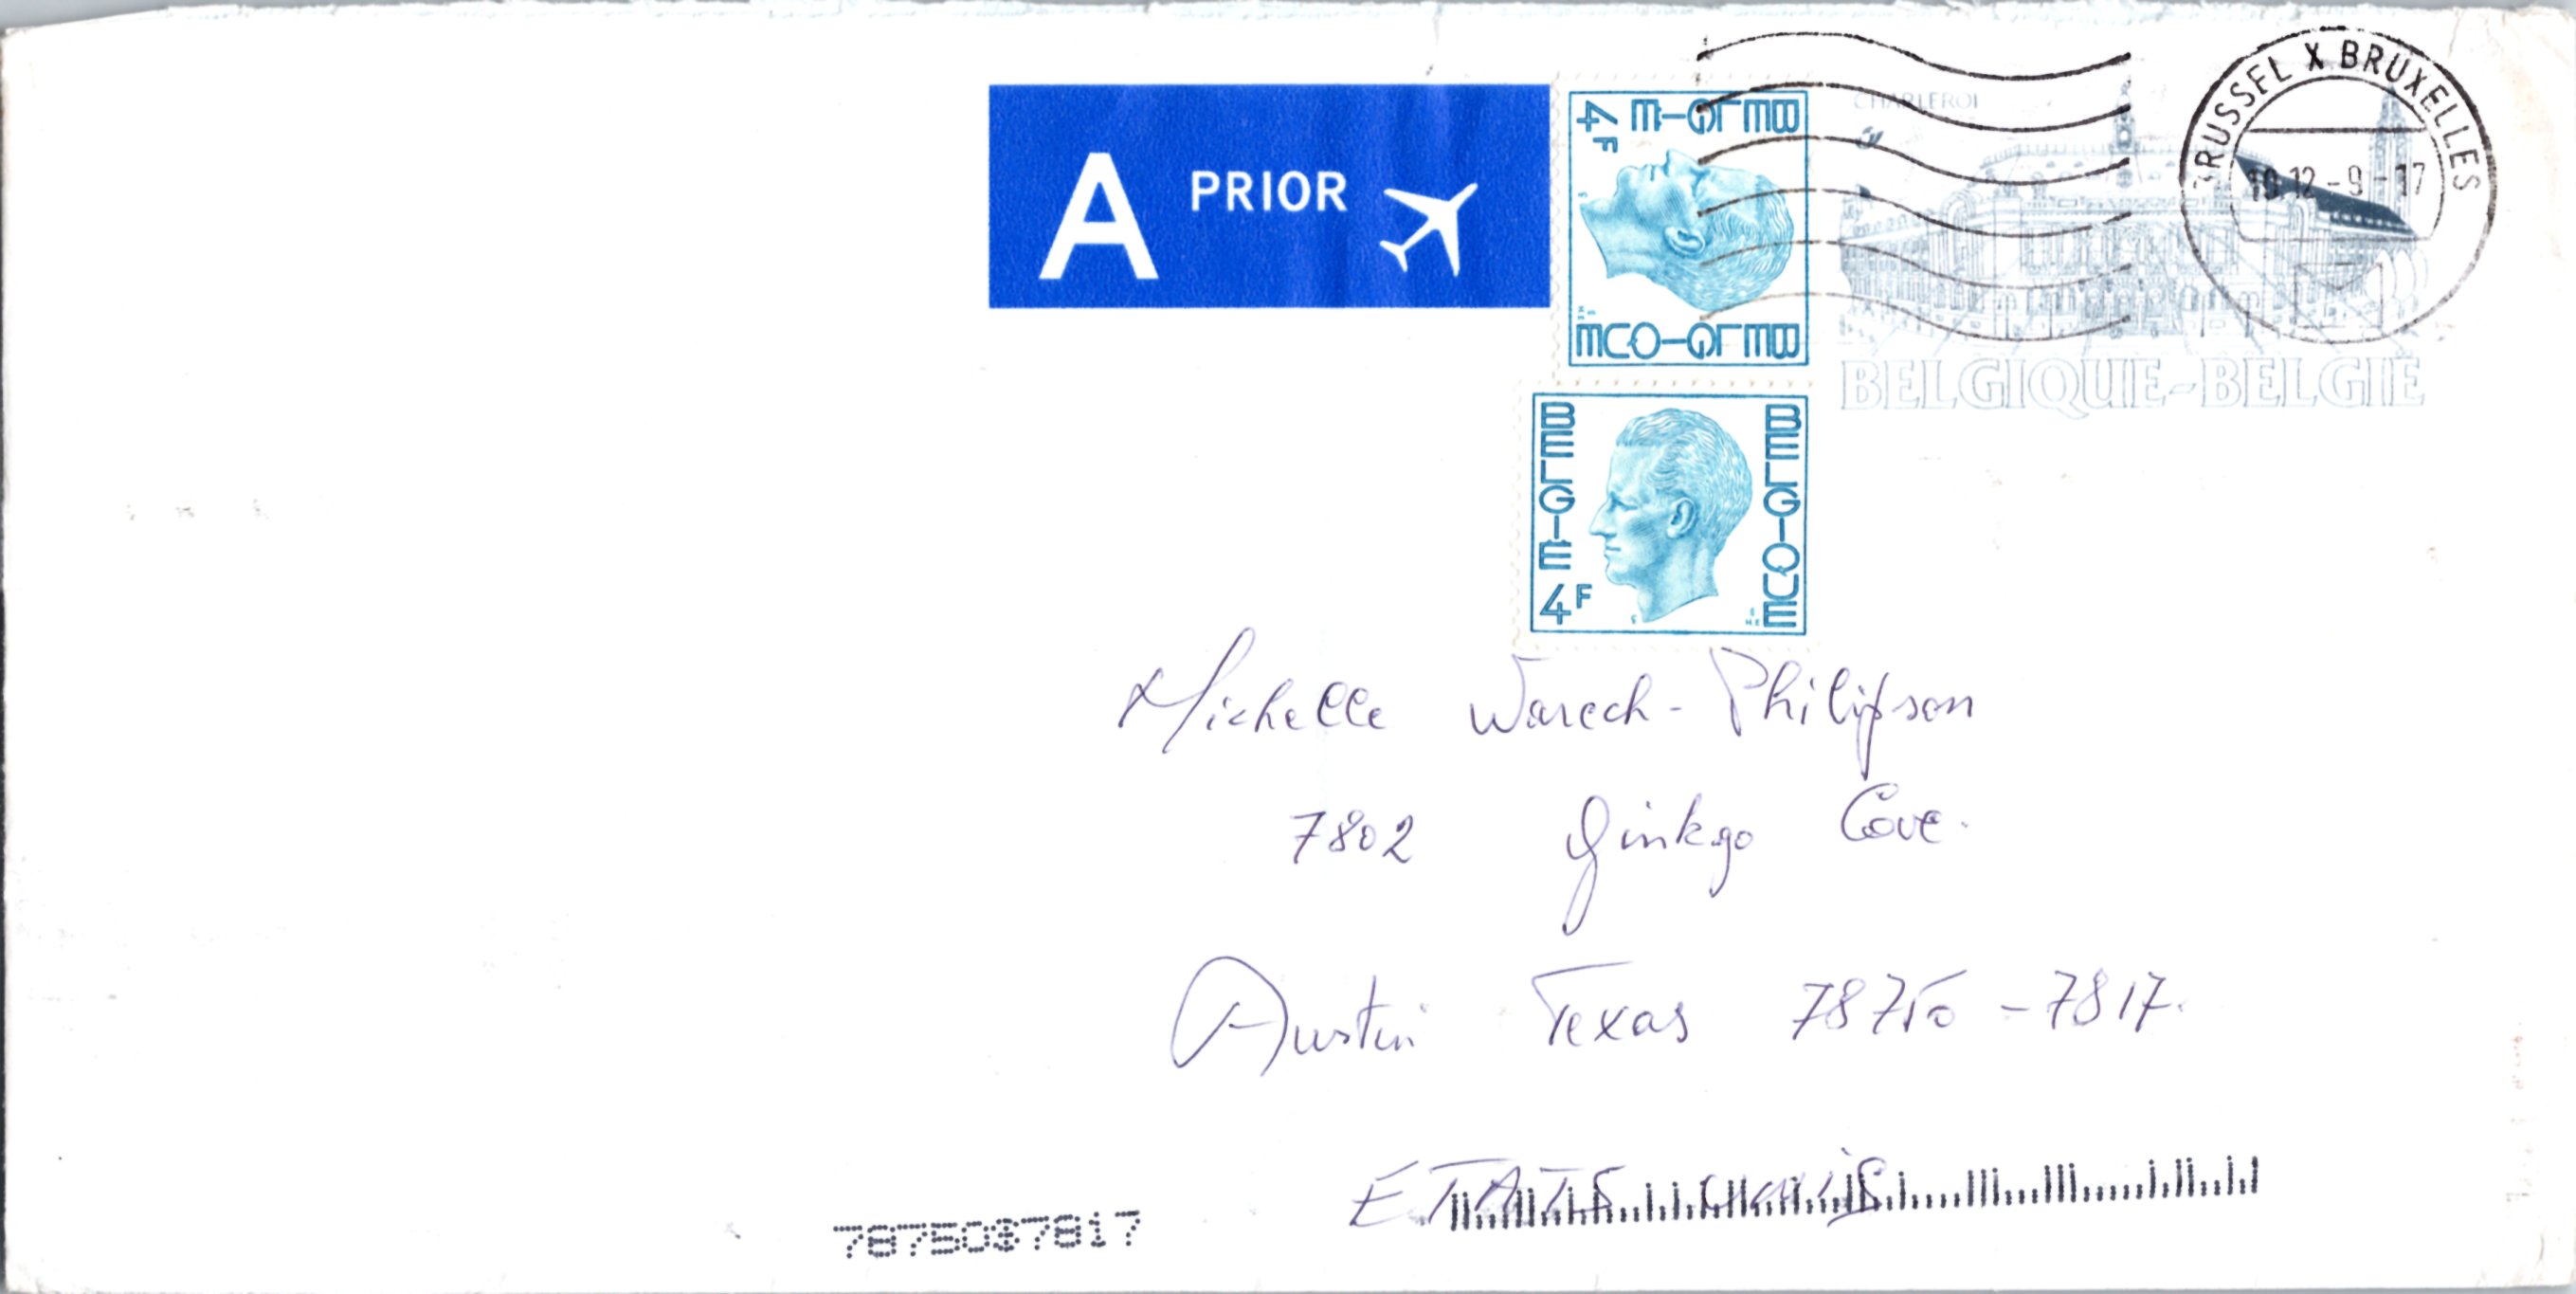 A PRIOR
BELGIË 4F
BELGIQUE
CHARLEROI
BRUSSEL X BRUXELLES
12-9-17
BELGIQUE-BELGIË
BELGIË 4F
BELGIQUE
Michelle Warech-Philipson
7802 Ginkgo Cove.
Austin Texas 78750-7817.
ETATS UNIS
78750$7817